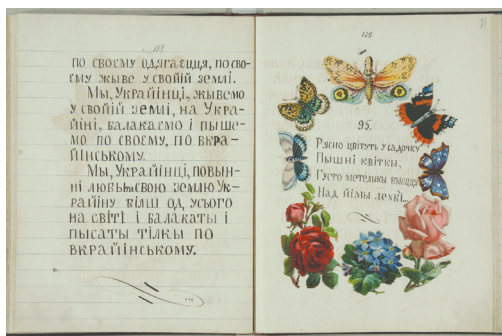 128
по своєму одягаєцця, по сво-
єму жыве у свойій землі.
Мы, Украйінці, жывемо
у свойій землі, на Укра-
йіні, балакаємо і пышe-
мо по своєму, по вкра-
йінському.
Мы, Украйінці, повын-
ні любыть свою землю Ук-
райіну білш од усього
на світі і балакаты і
пысаты тілкы по
вкрайінському.
129
95.
Рясно цвітуть у садочку
Пышні квіткы,
Густо метелыкы въюцця
Над йімы лехкі...